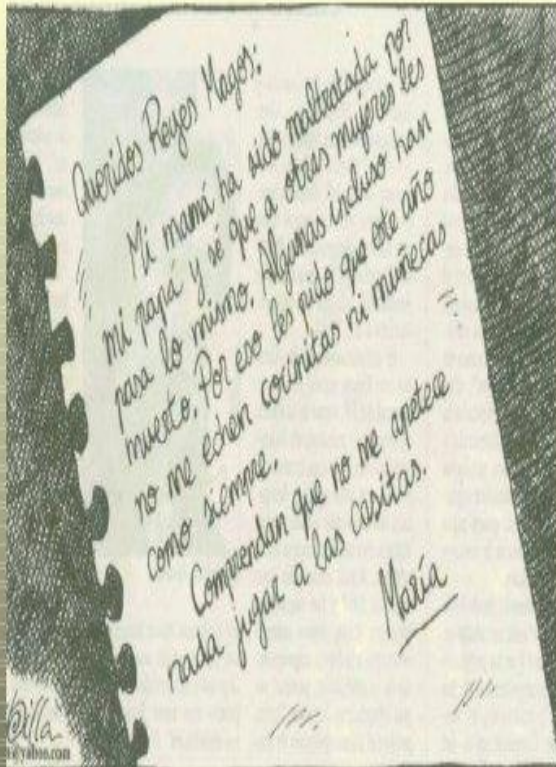 Queridos Reyes Magos:
Mi mamá ha sido maltratada por
mi papá y sé que a otras mujeres les
pasa lo mismo. Algunas incluso han
muerto. Por eso les pido que este año
no me echen cocinitas ni muñecas
como siempre.
Comprendan que no me apetece
nada jugar a las casitas.
María
yahoo.com